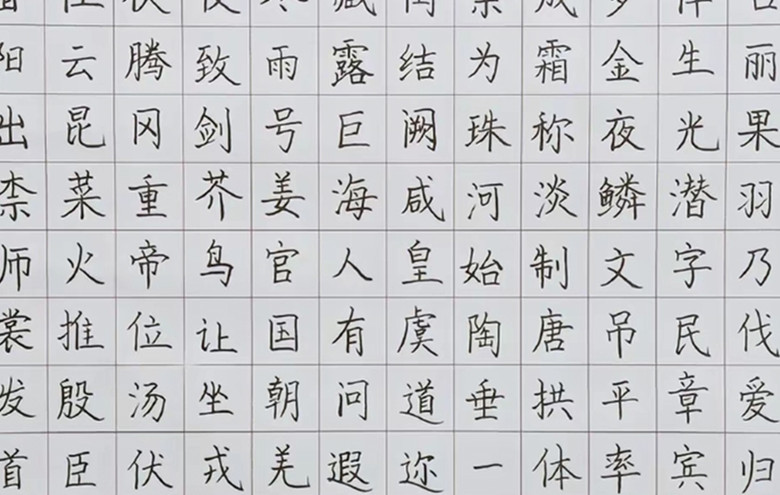 阳云腾致雨露结为霜金生丽
出昆冈剑号巨阙珠称夜光果
菜重芥姜海咸河淡鳞潜羽
师火帝鸟官人皇始制文字乃
裳推位让国有虞陶唐吊民伐
发殷汤坐朝问道垂拱平章爱
首臣伏戎羌遐迩一体率宾归